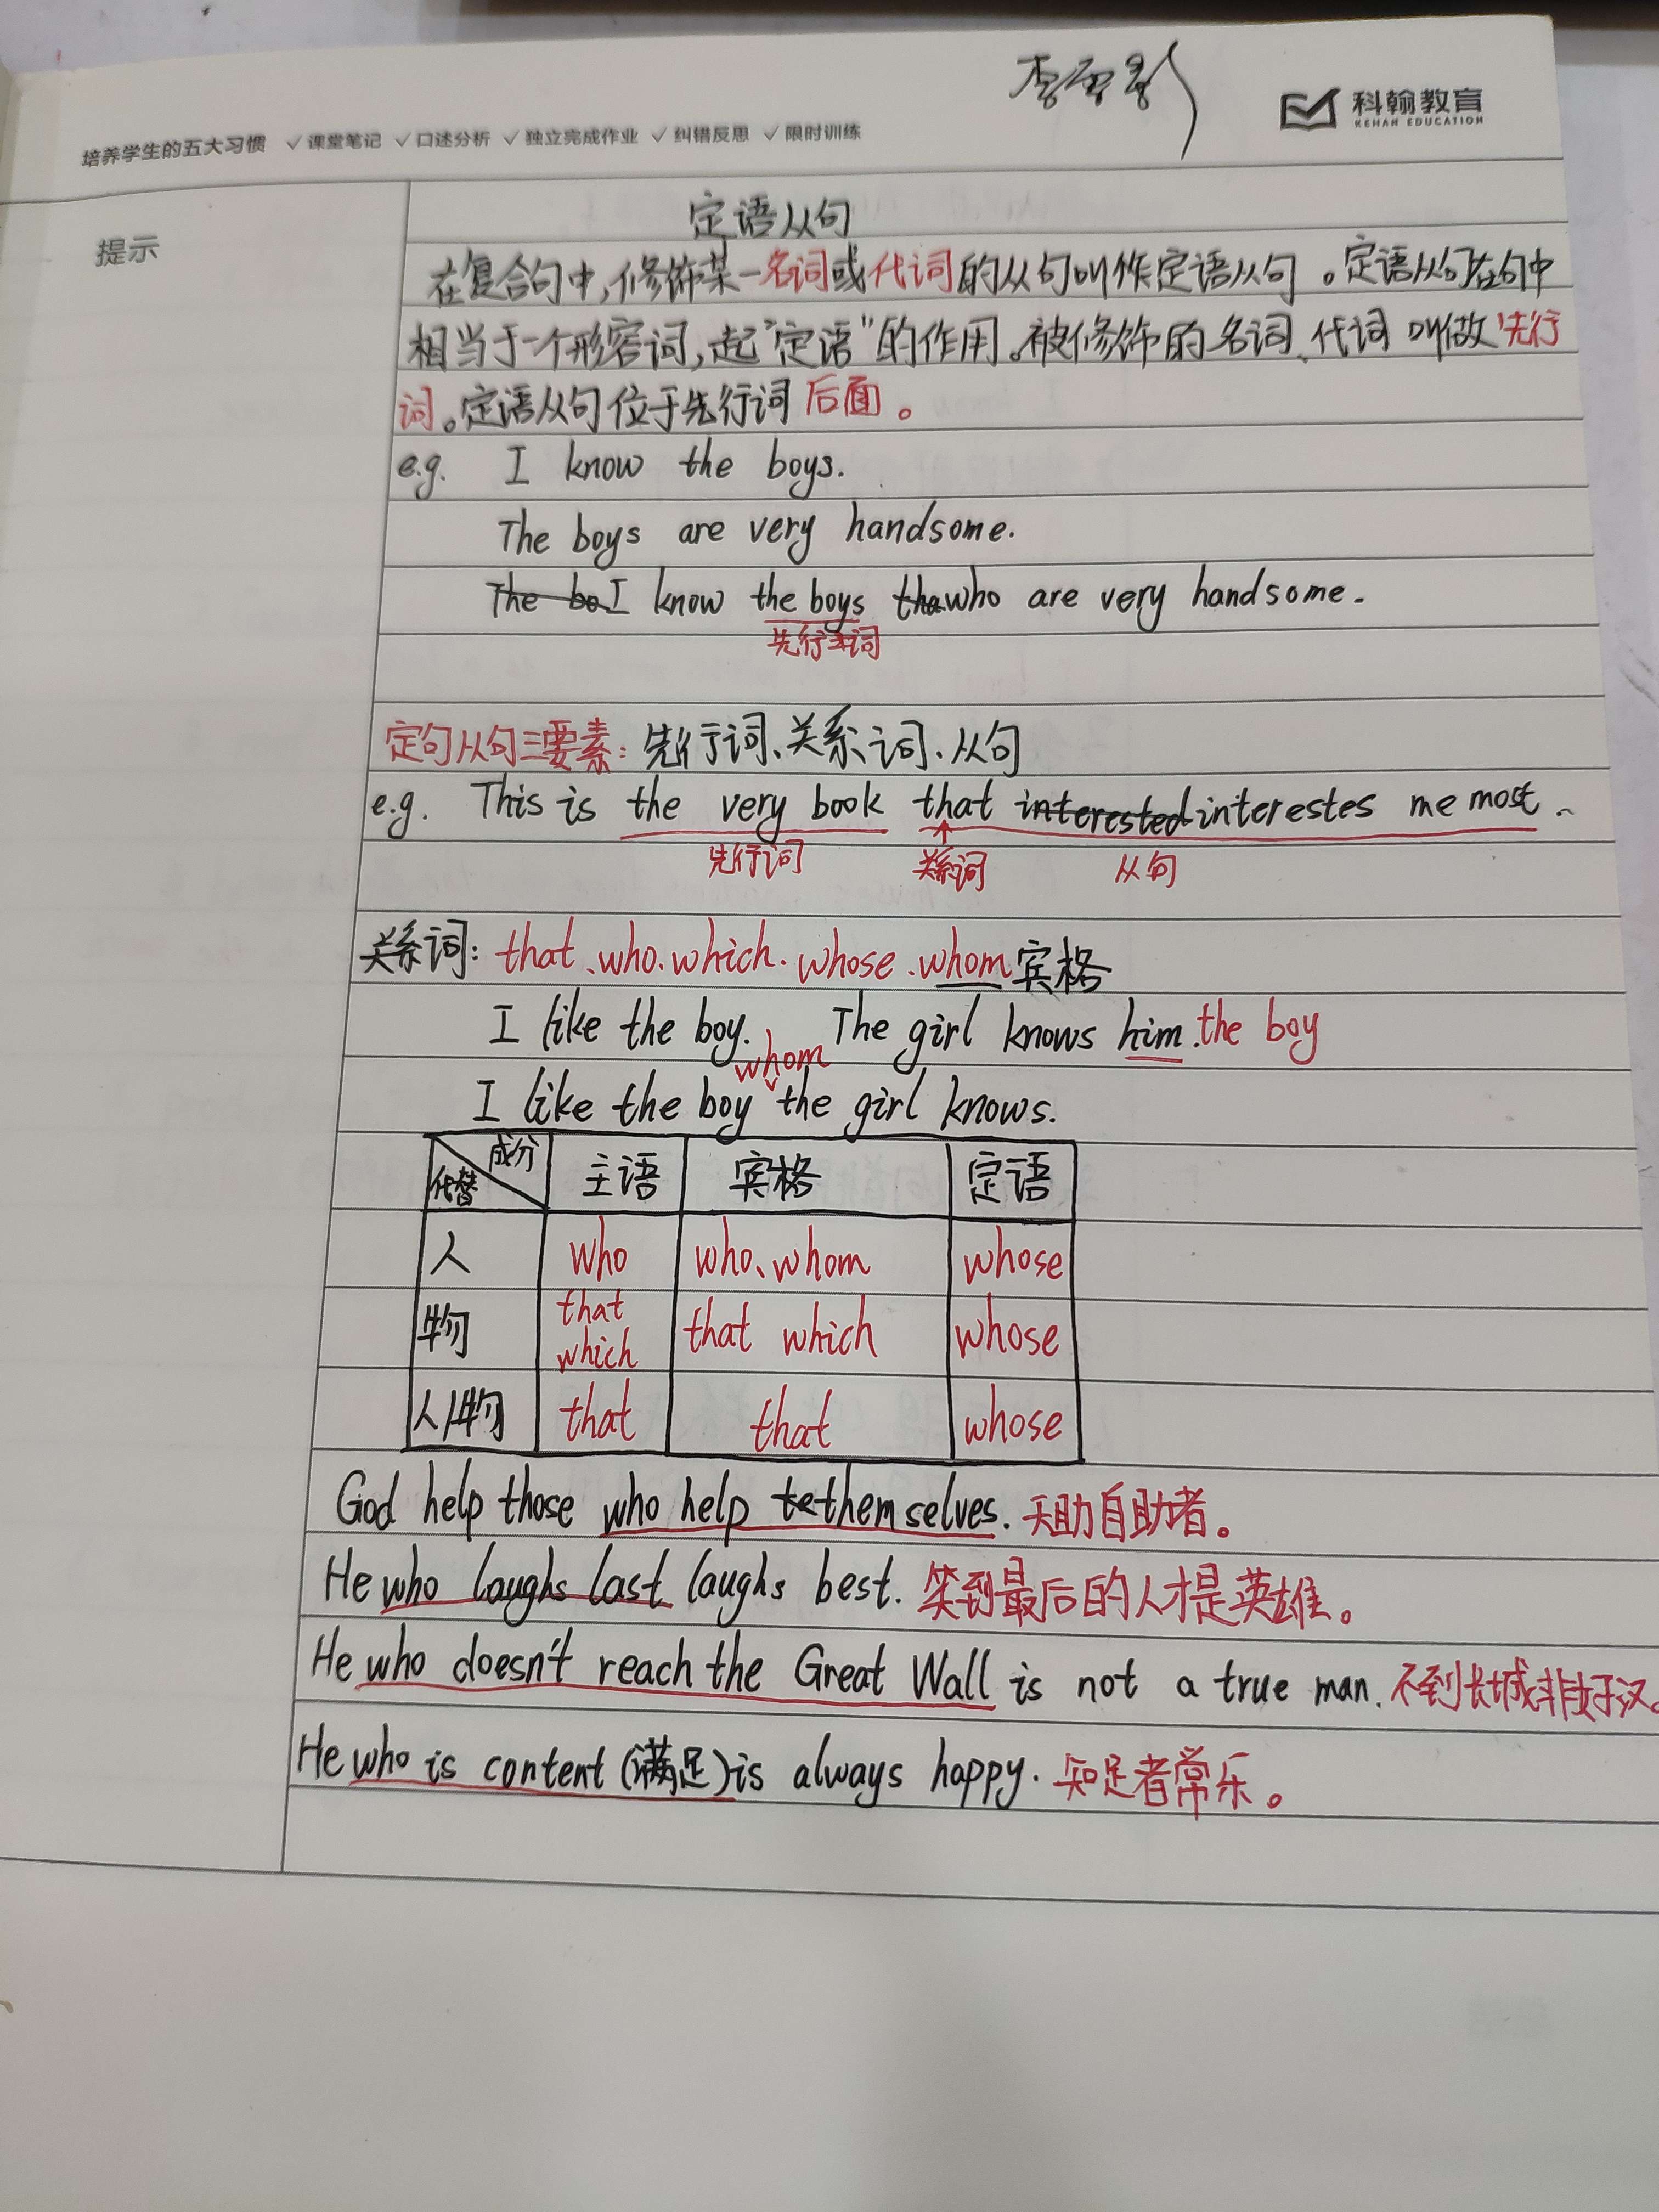 科翰教育
KEHAN EDUCATION
培养学生的五大习惯 ✓课堂笔记 ✓口述分析 ✓独立完成作业 ✓纠错反思 ✓限时训练
提示
定语从句
在复合句中,修饰某一名词或代词的从句叫作定语从句。定语从句在句中
相当于一个形容词,起"定语"的作用。被修饰的名词、代词叫做先行
词。定语从句位于先行词后面。
e.g. I know the boys.
The boys are very handsome.
The bo I know the boys tha who are very handsome.
先行词
定句从句三要素:先行词、关系词、从句
e.g. This is the very book that interested interestes me most.
先行词 关系词 从句
关系词: that、who、which、whose、whom宾格
I like the boy. The girl knows him. the boy
whom
I like the boy the girl knows.
成分
代替 主语 宾格 定语
人 who who、whom whose
物 that which that which whose
人/物 that that whose
God help those who help te themselves. 天助自助者。
He who laughs last laughs best. 笑到最后的人才是英雄。
He who doesn't reach the Great Wall is not a true man. 不到长城非好汉。
He who is content(满足)is always happy. 知足者常乐。